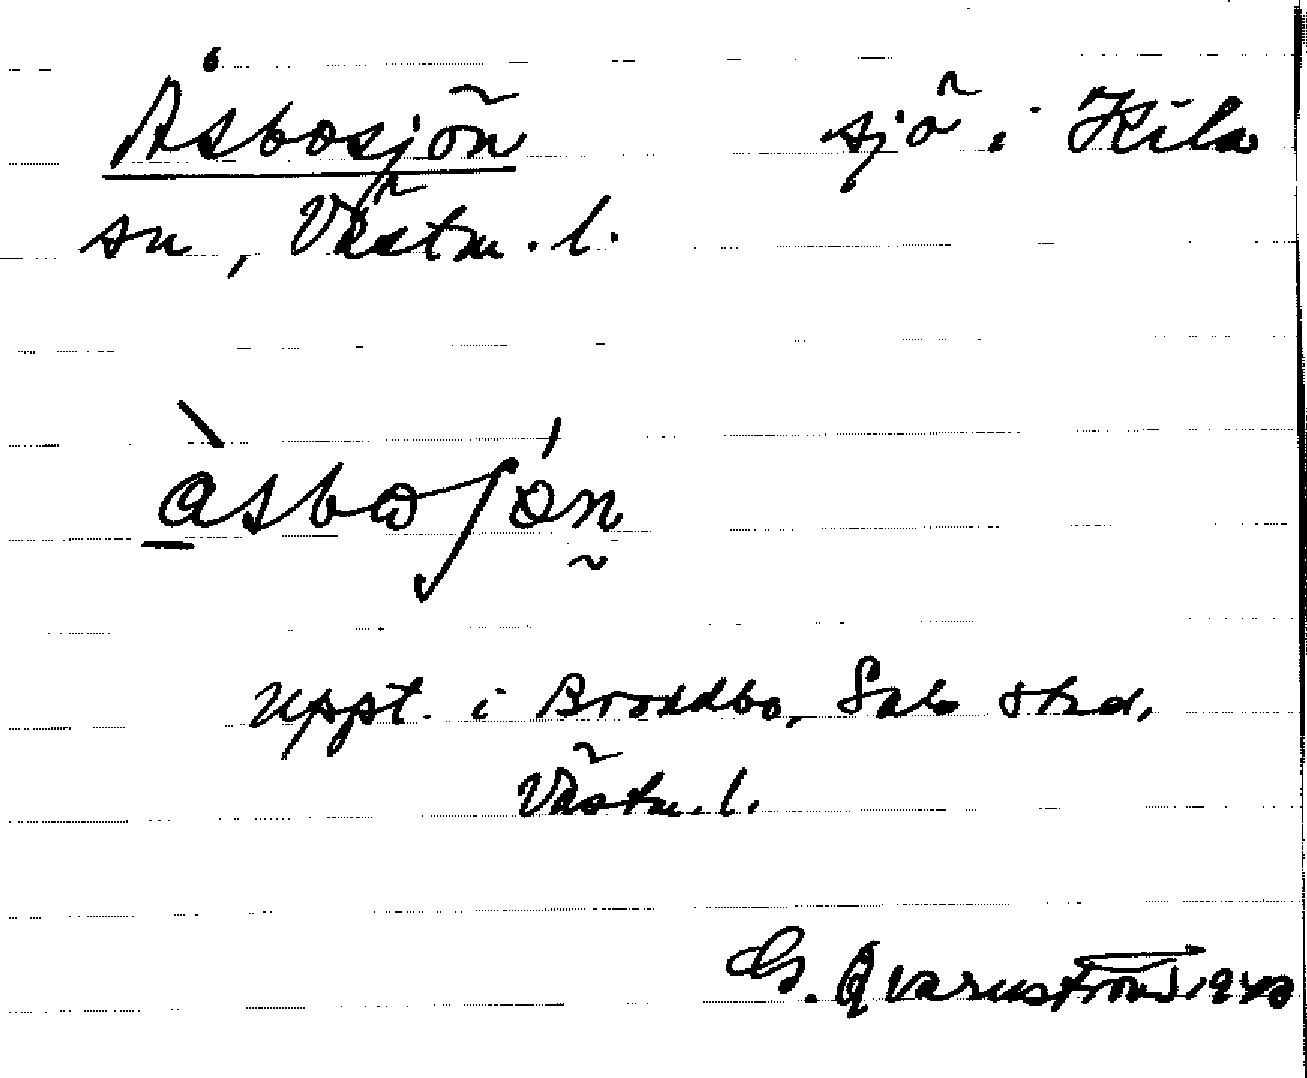 Åsbosjön sjö i Kila
sn, Västm. l.
åsbosjön
uppt. i Broddbo, Sala stad,
Västm. l.
G. Qvarnström 1940